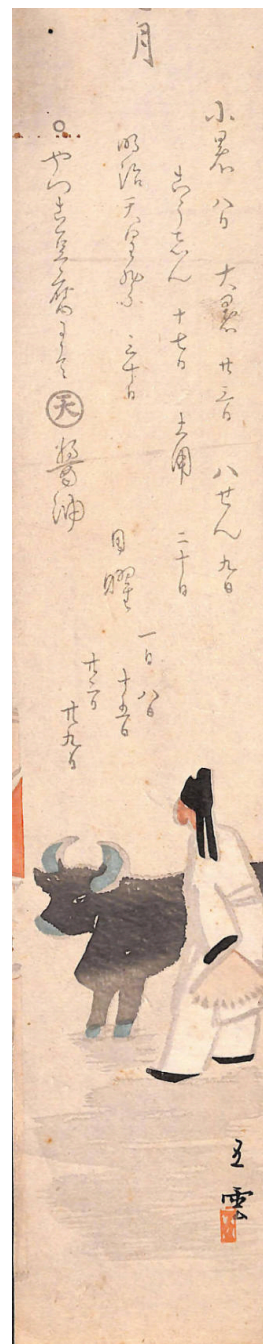 月
小暑 八日 大暑 廿三日 八せん 九日
こうしん 十七日 土用 二十日
明治天皇祭 三十日
日曜 一日 八日 十五日 廿二日 廿九日
やつこ豆腐まで 天 醤油
五雲